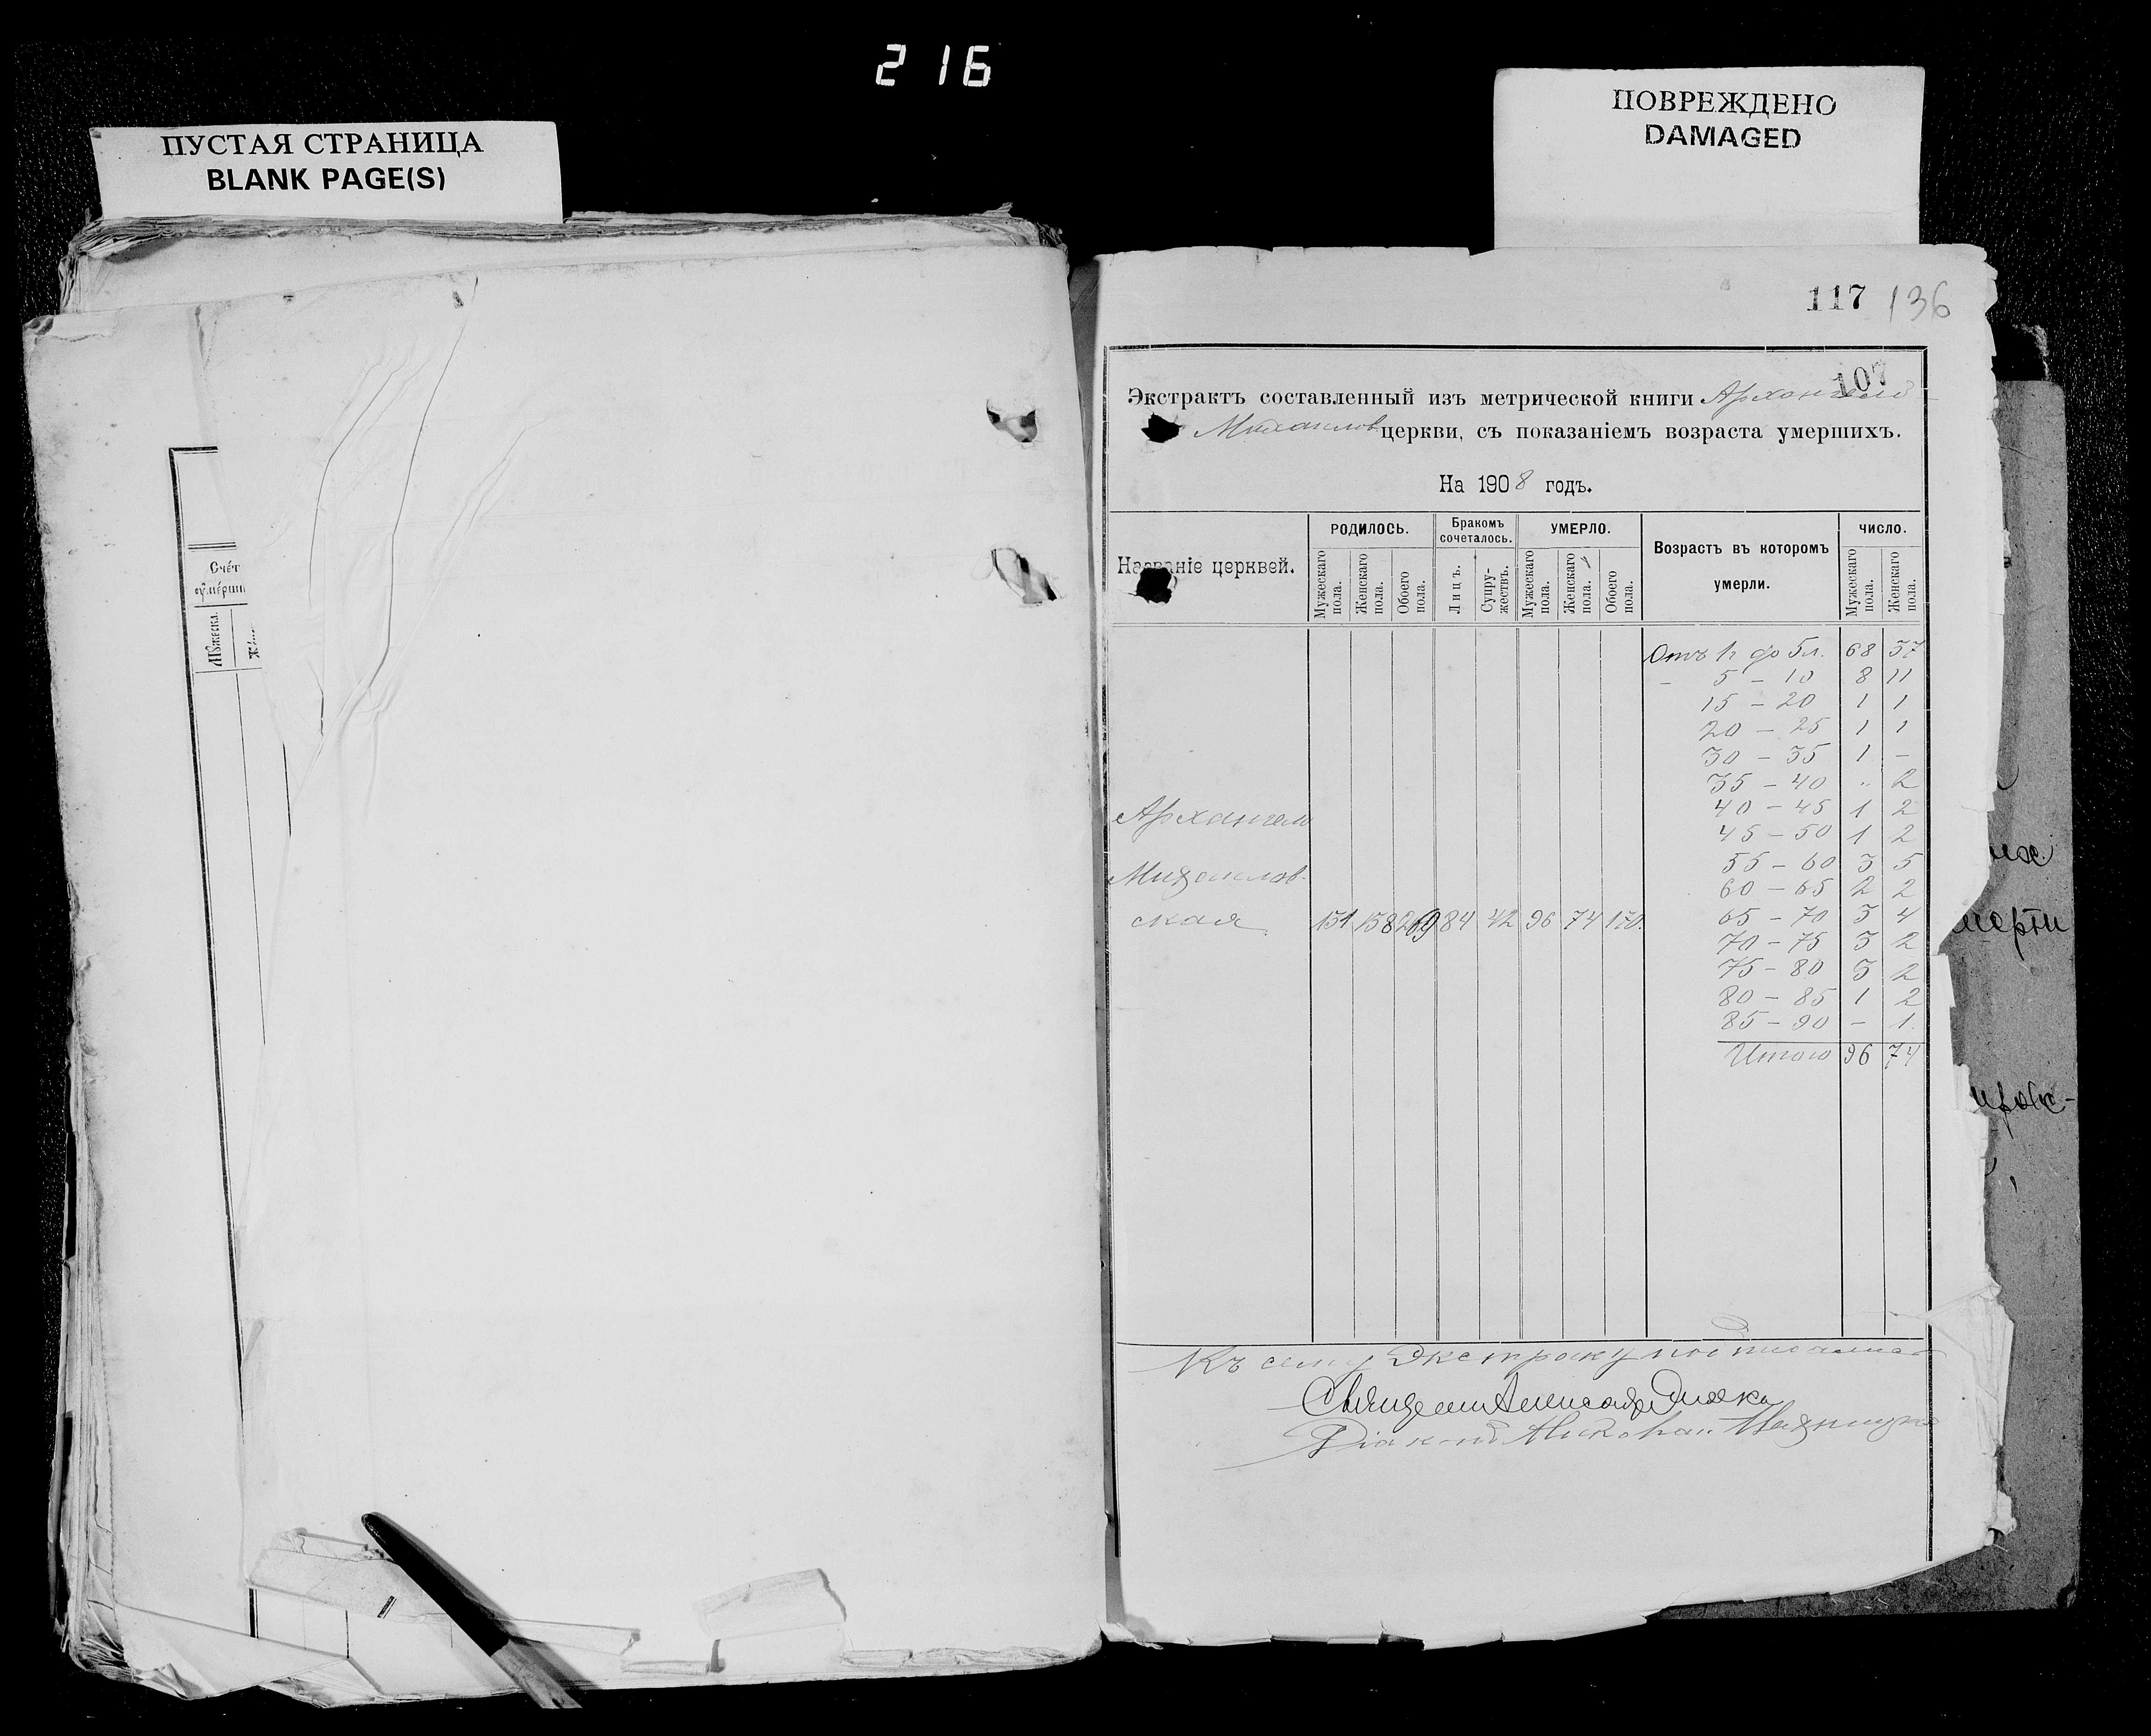 216
ПУСТАЯ СТРАНИЦА
BLANK PAGE(S)
ПОВРЕЖДЕНО
DAMAGED
117 136
107
Экстрактъ составленный изъ метрической книги Архангело-
Михаилов церкви, съ показаніемъ возраста умершихъ.
На 1908 годъ.
Названіе церквей.
РОДИЛОСЬ.
Бракомъ сочеталось.
УМЕРЛО.
Возрастъ въ которомъ умерли.
ЧИСЛО.
Мужескаго пола.
Женскаго пола.
Обоего пола.
Лицъ.
Супружествъ.
Мужескаго пола.
Женскаго пола.
Обоего пола.
Мужескаго пола.
Женскаго пола.
Отъ 1 г до 5 л. 68 37
- 5 - 10 8 11
15 - 20 1 1
20 - 25 1 1
30 - 35 1 -
35 - 40 " 2
40 - 45 1 2
45 - 50 1 2
55 - 60 3 5
60 - 65 2 2
65 - 70 3 4
70 - 75 3 2
75 - 80 3 2
80 - 85 1 2
85 - 90 - 1
Итого 96 74
Архангело
Михаилов-
ская 158 84 42 96 74 170.
Къ сему Экстракту
Діаконъ Николай
Счет
Мужеска